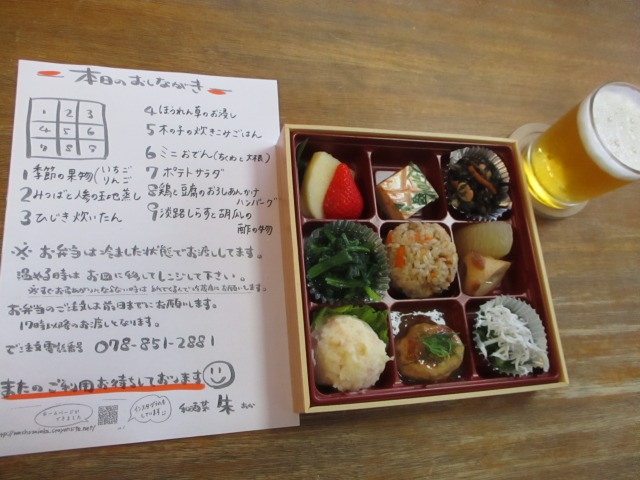 本日のおしながき
1 2 3
4 5 6
7 8 8
1 季節の果物(いちご りんご
2 みつばと人参の玉地蒸し
3 ひじき炊いたん
4 ほうれん草のお浸し
5 木の子の炊きこみごはん
6 ミニおでん(ちくわと大根)
7 ポテトサラダ
8 鶏と豆腐のおろしあんかけハンバーグ
9 淡路しらすと胡瓜の酢の物
※ お弁当は冷ました状態でお渡ししてます。
温める時はお皿に移してレンジして下さい。
お弁当のご注文は前日までにお願いします。
17時以降のお渡しとなります。
ご注文電話番号 078-851-2881
またのご利用お待ちしております
ホームページができました
インスタグラムもしています
朱